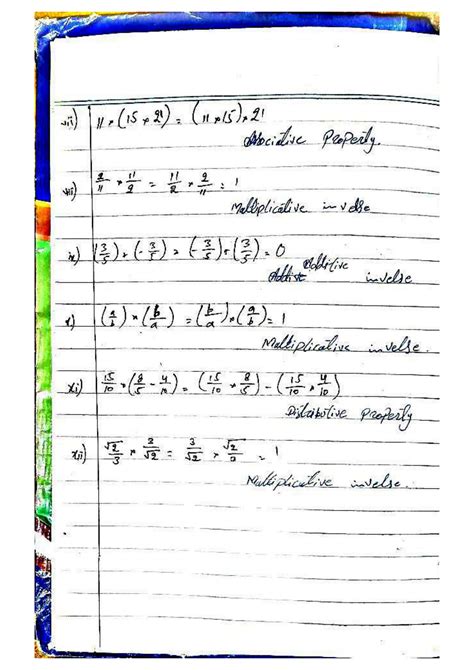 vii) 11 × (15 × 21) = (11 × 15) × 21
Associative Property.
viii) 2/11 × 11/2 = 11/2 × 2/11 = 1
Multiplicative inverse
ix) (3/5) + (-3/5) = (-3/5) + (3/5) = 0
Additive inverse
x) (a/b) × (b/a) = (b/a) × (a/b) = 1
Multiplicative inverse.
xi) 15/10 × (8/5 - 4/10) = (15/10 × 8/5) - (15/10 × 4/10)
Distributive Property
xii) √2/3 × 3/√2 = 3/√2 × √2/3 = 1
Multiplicative inverse.